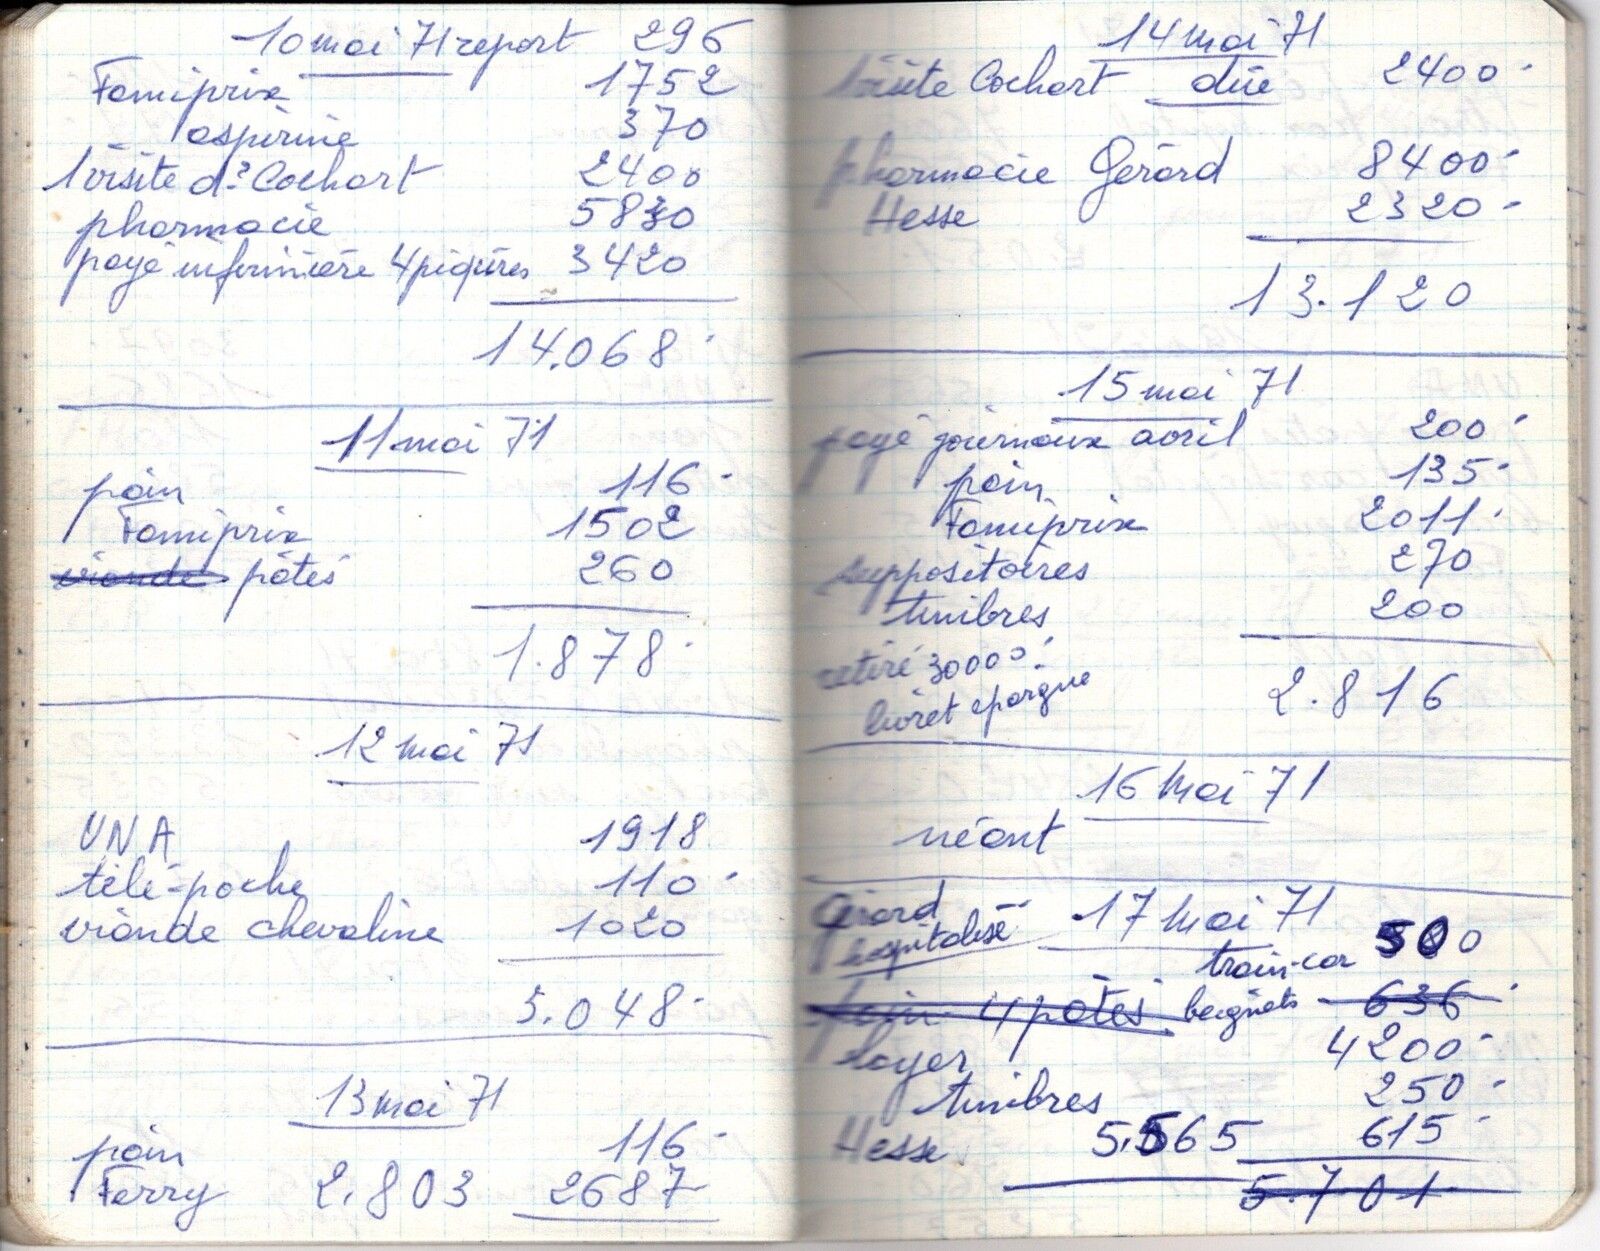 10 mai 71 report 296
Famiprix 1752
aspirine 370
1 visite dr Cochart 2400
pharmacie 5830
payé infirmière 4 piqûres 3420
14.068
11 mai 71
pain 116
Famiprix 1502
viande pâtés 260
1.878
12 mai 71
UNA 1918
télé-poche 110
viande chevaline 1020
3.048
13 mai 71
pain 116
Ferry 2.803 2687
14 mai 71
1 visite Cochart dûe 2400
pharmacie Gérard 8400
Hesse 2320
13.120
15 mai 71
payé journaux avril 200
pain 135
Famiprix 2011
suppositoires 270
timbres 200
retiré 30000
livret épargne 2.816
16 mai 71
néant
Gérard 17 mai 71
hospitalisé train-car 500
pain 4 pâtés beignets 636
loyer 4200
timbres 250
Hesse 5.565 615
5.701